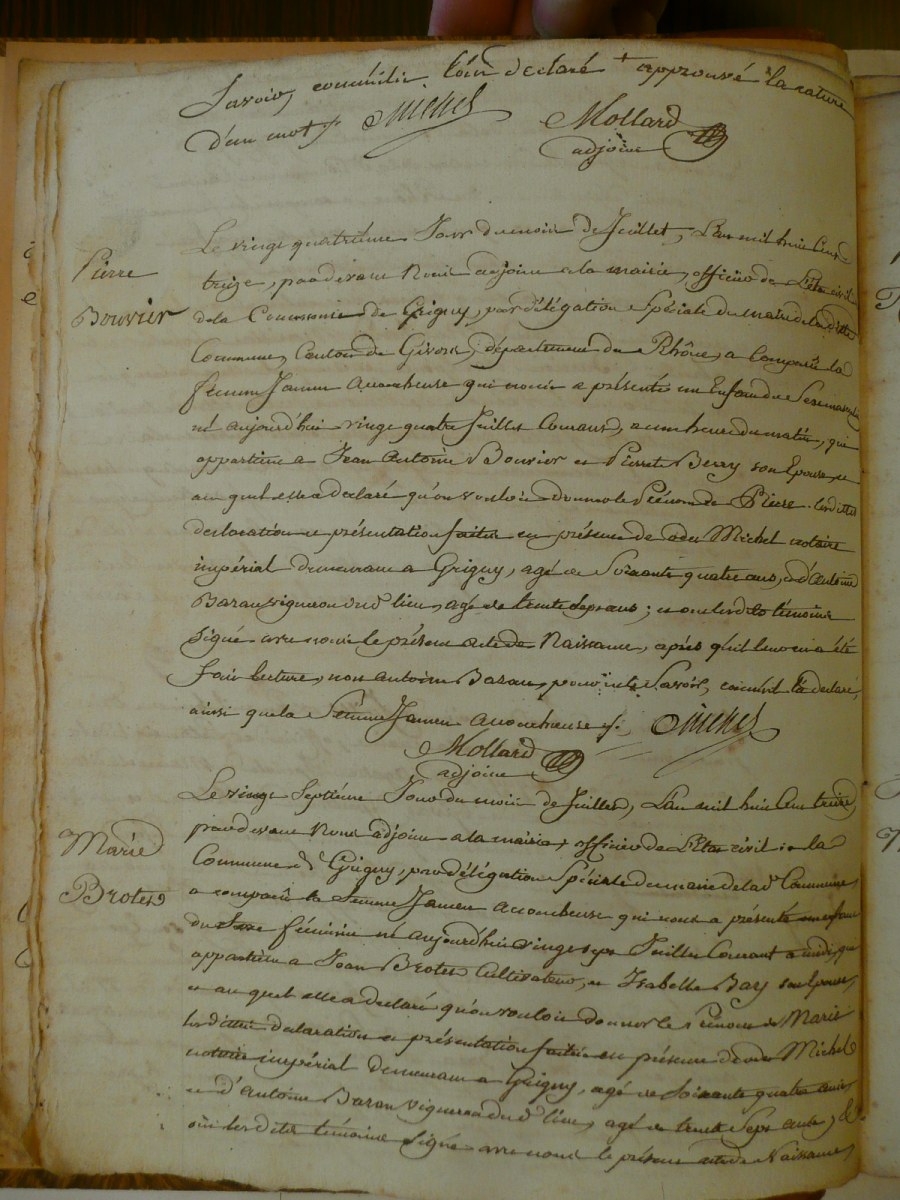 Savoir, comm'il l'on declaré + approuvé la rature
d'un mot ./. Michel
Mollard
adjoint
Pierre
Bouvier
Le vingt quatrième Jour du mois de Juillet, L'an mil huit Cent
treize, pardevant Nous adjoint a la mairie, officier de L'état civil
de la Commune de Grigny, par délégation Spéciale du maire de la ditte
Commune, Canton de Givors, département du Rhône, a Comparu la
femme Jamen Accoucheuse qui nous a présenté un Enfant du Sexe masculin
né aujourd'hui vingt quatre Juillet Courant, a une heure du matin, qui
appartient a Jean Antoine Bouvier et Pierrete Berry son Epouse, et
au quel elle a declaré qu'on vouloit donner le Prénom de Pierre. Lesdittes
declaration et présentation faites en présence de Michel notaire
impérial demeurant a Grigny, agé de Soixante quatre ans, & d'Antoine
Baran vigneron dud. lieu, agé de trente sept ans; et ont lesdits témoins
Signé avec nous le présent acte de Naissance, après qu'il leur en a été
fait lecture, non Antoine Baran, pour ne Savoir, comm'il l'a declaré,
ainsi que la femme Jamen Accoucheuse ./. Michel
Mollard
adjoint
Marie
Brotes
Le vingt Septième Jour du mois de Juillet, L'an mil huit Cent treize,
pardevant Nous adjoint a la mairie, officier de L'état civil de la
Commune de Grigny, par délégation Spéciale du maire de lad. Commune,
a comparu la femme Jamen Accoucheuse qui nous a présenté un enfant
du Sexe féminin né aujourd'hui vingt sept Juillet Courant a midi, qui
appartient a Jean Brotes Cultivateur, et Isabelle Bary son Epouse,
et au quel elle a declaré qu'on vouloit donner le Prénom de Marie
lesdittes declaration et présentation faites en présence de Michel
notaire impérial demeurant a Grigny, agé de Soixante quatre ans
et d'Antoine Baran vigneron dud. lieu, agé de trente Sept ans; &
ont lesdits témoins Signé avec nous le présent acte de Naissance,